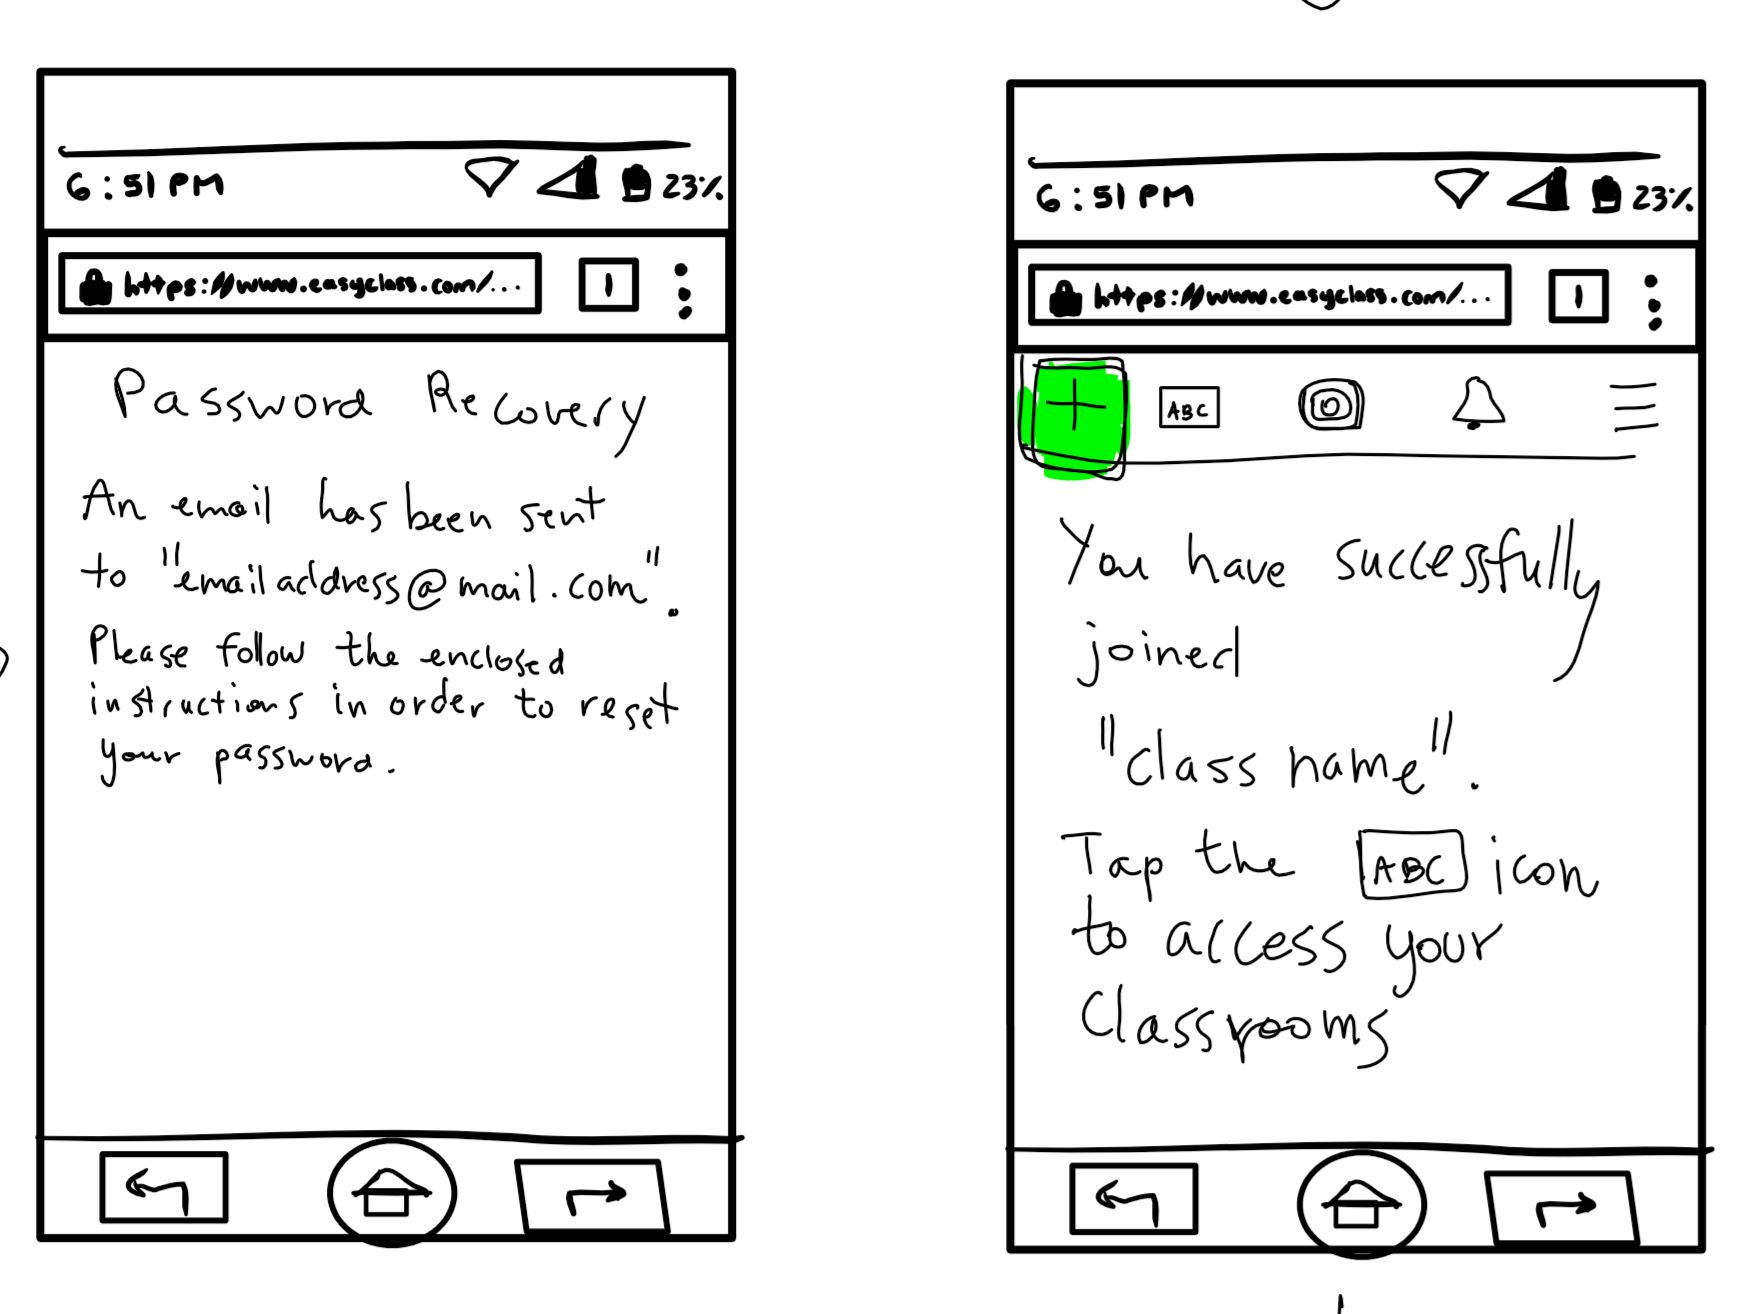 6:51 PM 23%
https://www.easyclass.com/... 1
Password Recovery
An email has been sent
to "emailaddress@mail.com".
Please follow the enclosed
instructions in order to reset
your password.
6:51 PM 23%
https://www.easyclass.com/... 1
+ ABC
You have successfully
joined
"class name".
Tap the ABC icon
to access your
Classrooms